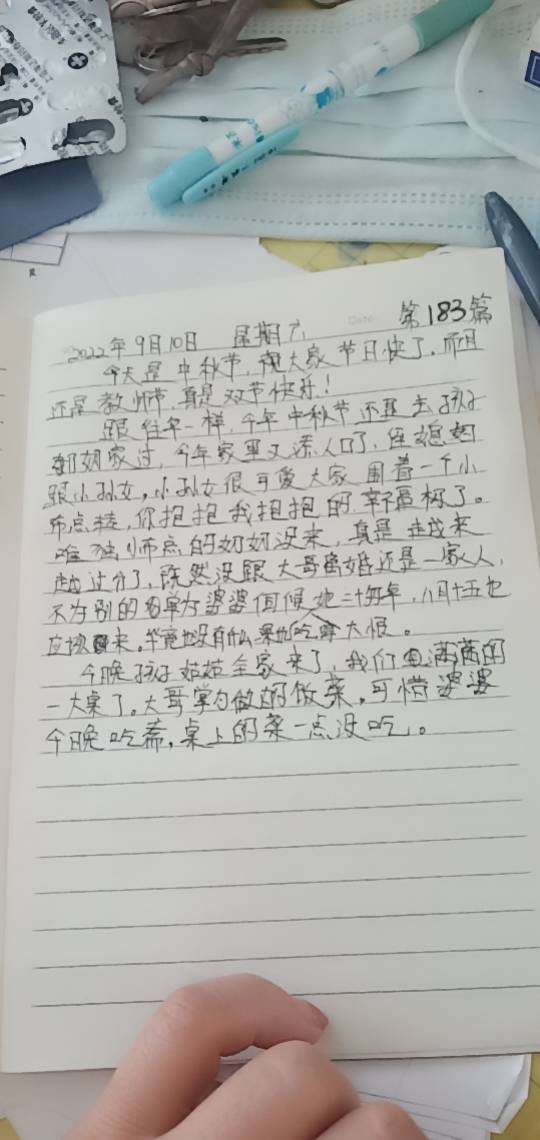 第183篇
2022年9月10日 星期六
今天是中秋节,祝大家节日快了.而且
还是教师节,真是双节快乐!
跟往年一样,今年中秋节还是去孩子
奶奶家过,今年家里又添人口了,侄媳妇
跟小孙女,小孙女很可爱大家围着一个小
布点转,你抱抱我抱抱的,幸福极了。
唯独小布点的奶奶没来,真是越来
越过分了,既然没跟大哥离婚还是一家人,
不为别的 单为婆婆伺候她二十多年,八月十五也
应该 来,毕竟也没有什么 大恨。
今晚孩子姑姑全家来了,我们 满满的
一大桌了。大哥掌勺做的饭菜,可惜婆婆
今晚吃斋,桌上的菜一点没吃。